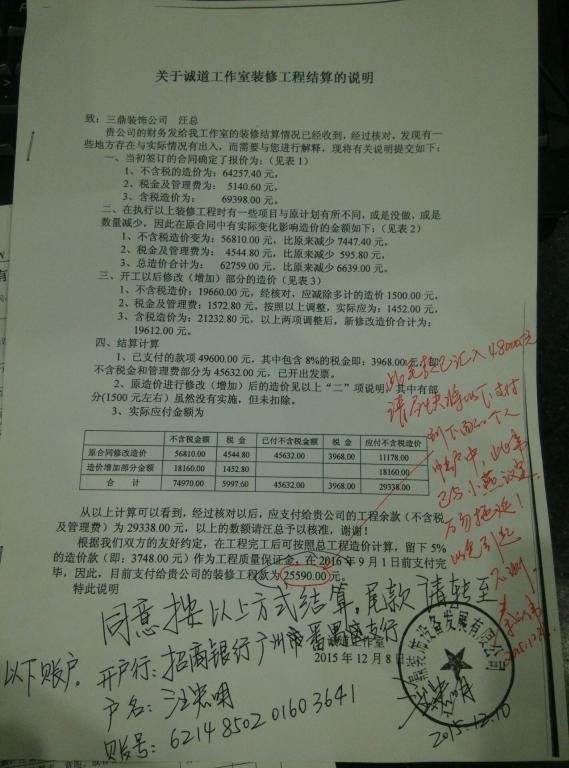 关于诚道工作室装修工程结算的说明
致：三鼎装饰公司 汪总
贵公司的财务发给我工作室的装修结算情况已经收到，经过核对，发现有一
些地方存在与实际情况有出入，而需要与您进行解释，现将有关说明提交如下：
一、当初签订的合同确定了报价为：（见表1）
1、不含税的造价为：64257.40 元，
2、税金及管理费为： 5140.60 元，
3、含税造价为： 69398.00 元。
二、在执行以上装修工程时有一些项目与原计划有所不同，或是没做，或是
数量减少，因此在原合同中有实际变化影响造价的金额如下：（见表2）
1、不含税造价变为：56810.00 元，比原来减少 7447.40 元，
2、税金及管理费为： 4544.80 元，比原来减少 595.80 元，
3、总造价合计为： 62759.00 元，比原来减少 6639.00 元。
三、开工以后修改（增加）部分的造价（见表3）
1、不含税造价：19660.00 元，经核对，应减除多计的造价 1500.00 元，
2、税金及管理费：1572.80 元，按照以上调整，实际应为：1452.00 元，
3、含税造价为：21232.80 元，以上两项调整后，新修改造价合计为：
19612.00 元。
四、结算计算
1、已支付的款项 49600.00 元，其中包含 8%的税金即：3968.00 元，即
不含税金和管理费部分为 45632.00 元，已开出发票。
2、原造价进行修改（增加）后的造价见以上“二”项说明，其中有部
分(1500 元左右）虽然没有实施，但未扣除。
3、实际应付金额为
不含税金额 税 金 已付不含税金额 税 金 应付不含税造价
原合同修改造价 56810.00 4544.80 45632.00 3968.00 11178.00
造价增加部分金额 18160.00 1452.80 18160.00
合 计 74970.00 5997.60 45632.00 3968.00 29338.00
从以上计算可以看到，经过核对以后，应支付给贵公司的工程余款（不含税
及管理费）为 29338.00 元，以上的数额请汪总予以核准，谢谢！
根据我们双方的友好约定，在工程完工后可按照总工程造价计算，留下 5%
的造价款（即：3748.00 元）作为工程质量保证金，在 2016 年 9 月 1 日前支付完
毕，因此，目前支付给贵公司的装修工程款为 25590.00 元。
特此说明
诚道工作室
2015 年 12 月 8 日
同意按以上方式结算，尾款请转至
以下账户。
开户行：招商银行广州市番禺支行
户名：汪忠明
账号：6214850201603641
2015.12.10
此笔款已汇入48000元
请尽快将以下支付
到下面的个人
帐户中，此事
已与小燕议定
万勿拖延！
以免引起
不测。
2015.12.
装饰设备发展有限公司